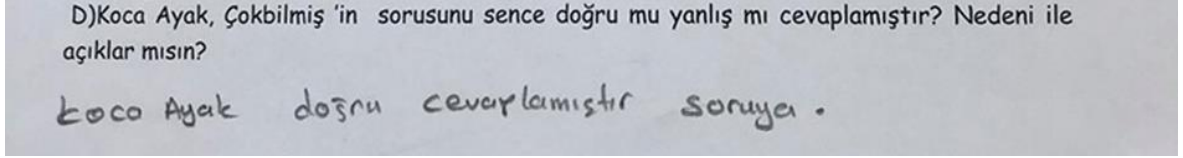 D)Koca Ayak, Çokbilmiş 'in sorusunu sence doğru mu yanlış mı cevaplamıştır? Nedeni ile
açıklar mısın?
koco Ayak doğru cevaplamıştır soruya .